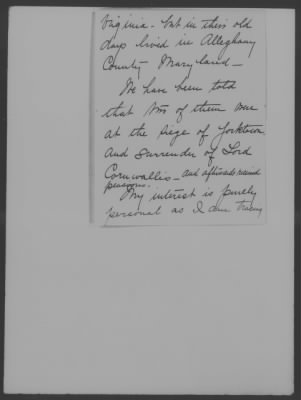 Virginia. but in their old
days lived in Alleghany
County Maryland —
We have been told
that two of them were
at the Siege of Yorktown.
and Surrender of Lord
Cornwallis — and afterwards received
pensions.
My interest is purely
personal as I am tracing